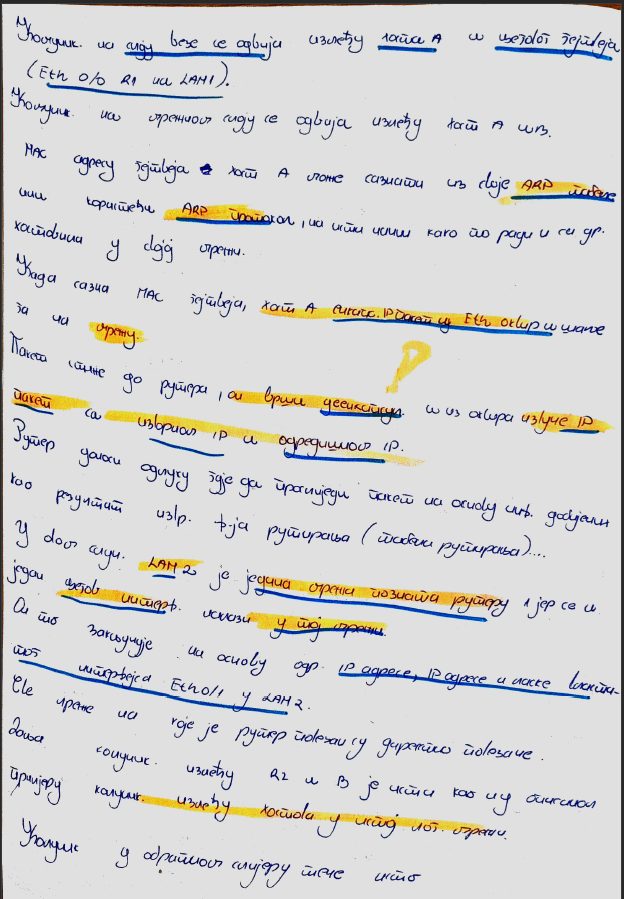 Комуник. на слоју везе се одвија између хоста A и његовог гејтвеја
(Eth 0/0 R1 на LAN1).
Комуник. на мрежном слоју се одвија између хост A и B.
MAC адресу гејтвеја хост A може сазнати из своје ARP табеле
или користећи ARP протокол, на исти начин како то ради и са др.
хостовима у својој мрежи.
Када сазна MAC гејтвеја, хост A енкапс. IP пакет у Eth оквир и шаље
га на мрежу.
Пакет стиже до рутера, он врши деенкапсул. и из оквира излучује IP
пакет са изворном IP и одредишном IP.
Рутер доноси одлуку гдје да прослиједи пакет на основу инф. добијених
као резултат извр. ф-ја рутирања (табели рутирања)...
У овом случ. LAN 2 је једина мрежа позната рутеру 1 јер се и
један његов интерф. налази у тој мрежи.
Он то закључује на основу одр. IP адресе, IP адресе и маске
интерфејса Eth0/1 у LAN2.
Све мреже на које је рутер повезан су директно повезане.
Даља комуник. између R2 и B је иста као и у описаном
примјеру комуник. између хостова у истој лок. мрежи.
Комуник у обратном смјеру тече исто